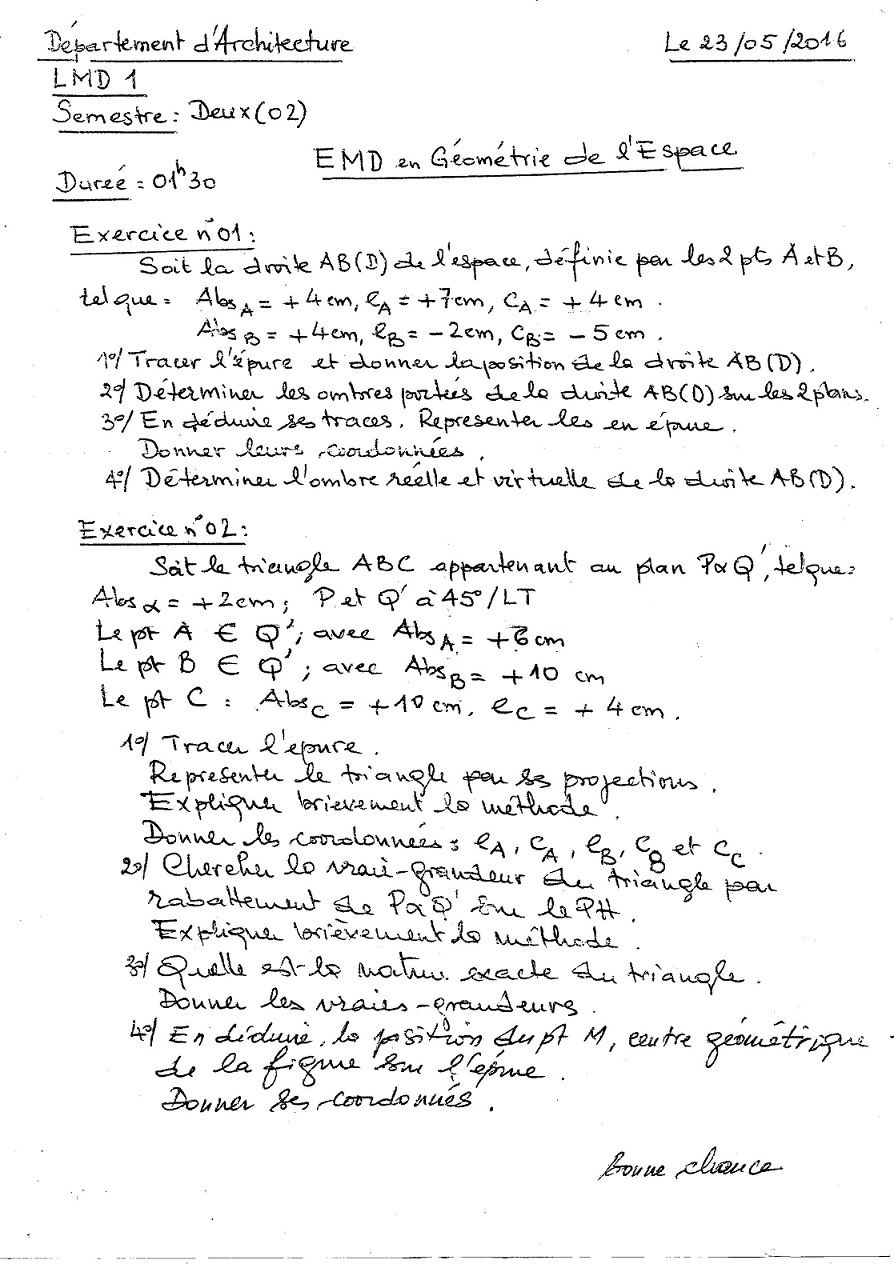 Département d'Architecture
Le 23/05/2016
LMD 1
Semestre : Deux (02)
EMD en Géométrie de l'Espace
Dureé : 01h30
Exercice n°01 :
Soit la droite AB(D) de l'espace, définie par les 2 pts A et B,
tel que : AbsA = +4cm, eA = +7cm, CA = +4cm.
AbsB = +4cm, eB = -2cm, CB = -5cm.
1°/ Tracer l'épure et donner la position de la droite AB(D).
2°/ Déterminer les ombres portées de la droite AB(D) sur les 2 plans.
3°/ En déduire ses traces. Representer les en épure.
Donner leurs coordonnées.
4°/ Déterminer l'ombre réelle et virtuelle de la droite AB(D).
Exercice n°02 :
Soit le triangle ABC appartenant au plan PαQ', tel que :
Absα = +2cm ; P et Q' à 45°/LT
Le pt A ∈ Q' ; avec AbsA = +6cm
Le pt B ∈ Q' ; avec AbsB = +10 cm
Le pt C : AbsC = +10cm, eC = +4cm.
1°/ Tracer l'épure.
Representer le triangle par ses projections.
Expliquer brievement la méthode.
Donner les coordonnées : eA, CA, eB, CB et CC.
2°/ Chercher la vraie-grandeur du triangle par
rabattement de PαQ' sur le PH.
Expliquer brièvement la méthode.
3°/ Quelle est la nature exacte du triangle.
Donner les vraies-grandeurs.
4°/ En déduire, la position du pt M, centre géométrique
de la figure sur l'épure.
Donner ses coordonnés.
Bonne chance